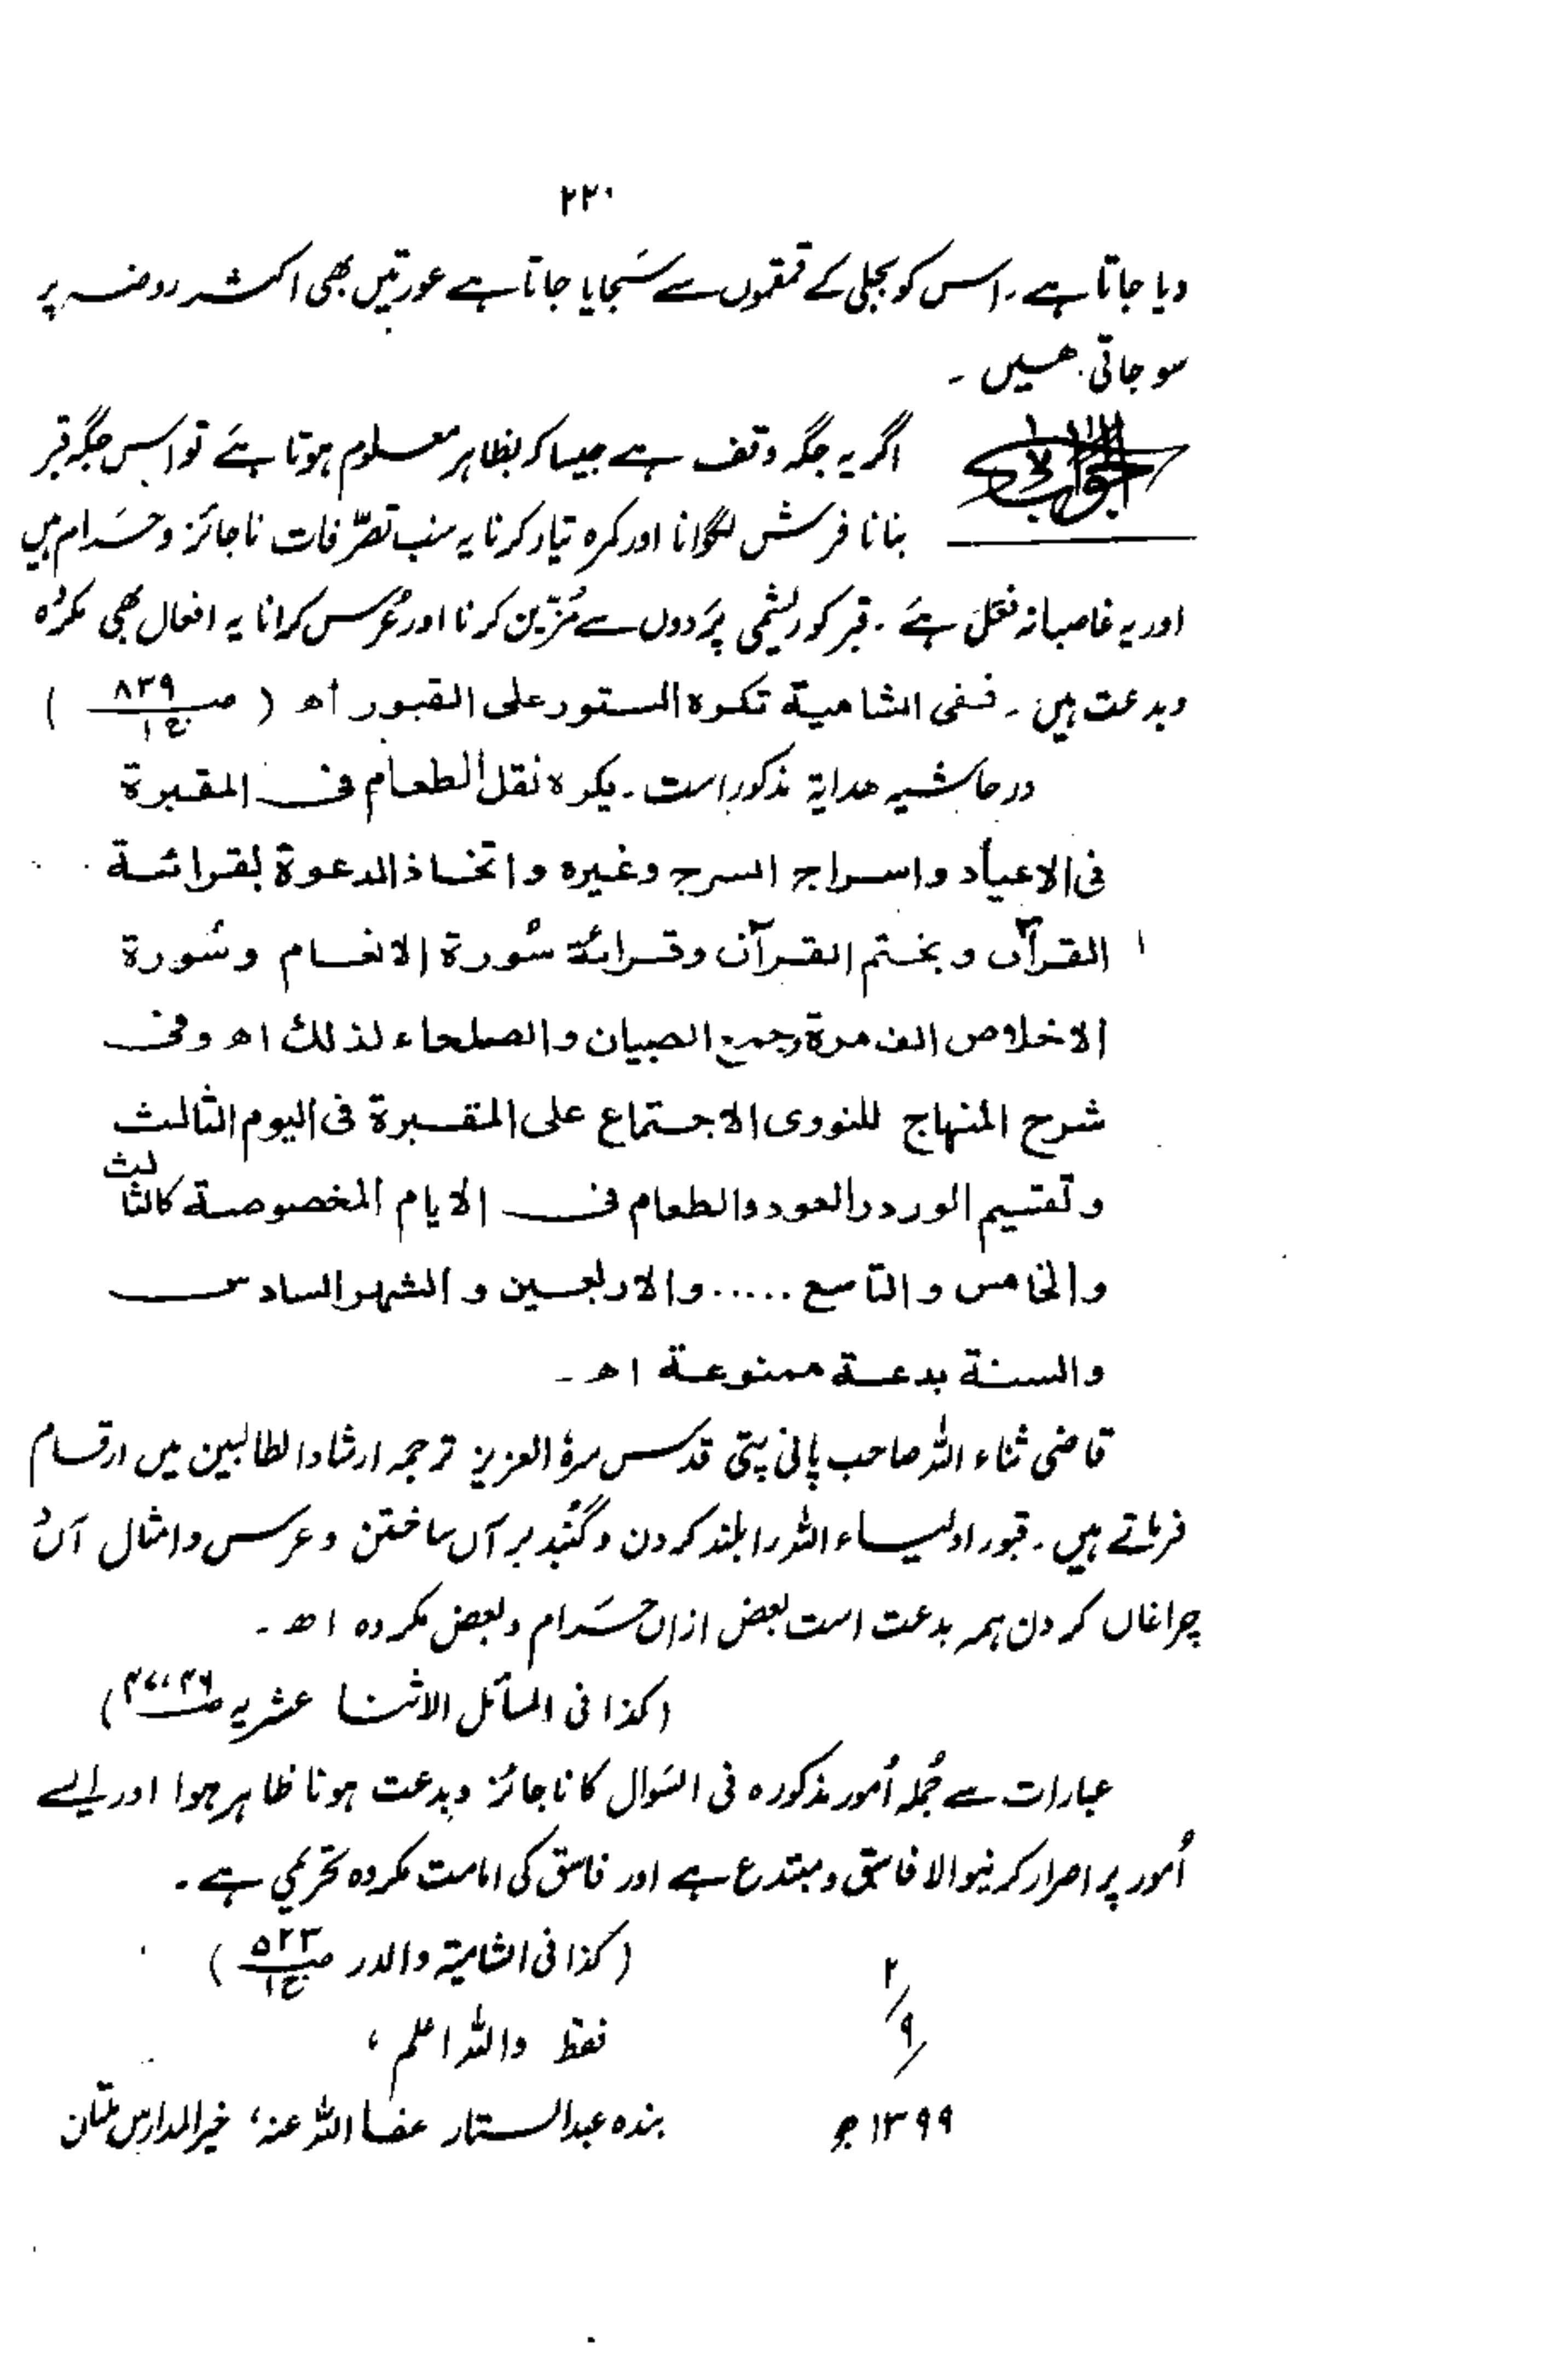 ۲۳۰
دیا جاتا ہے۔ اس کو بجلی کے قمقموں سے سَجایا جاتا ہے عورتیں بھی اکثر روضہ پر
سو جاتی ہیں ۔
الجواب اگر یہ جگہ وقف ہے جیسا کہ بظاہر معلوم ہوتا ہے تو اس جگہ قبر
بنانا فرش لگوانا اور کمرہ تیار کرنا یہ سب تصرّفات ناجائز و حَرام ہیں
اور یہ غاصبانہ فعل ہے ۔ قبر کو ریشمی پَردوں سے مُزیّن کرنا اور عُرس کرانا یہ افعال بھی مکرُہ
وبدعت ہیں ۔ ففی الشامیة تکرہ الستور علی القبور اھ ( صـ ۸۳۹ ج ۱ )
در حاشیہ ھدایة مذکور است ۔ یکرہ نقل الطعام فی المقبرة
فی الاعیاد واسراج السرج وغیرہ واتخاذ الدعوة لقرائة
القرآن و بختم القرآن وقرائة سُورة الانعام وسُورة
الاخلاص الف مرة وجمع الصبیان والصلحاء لذلك اھ وفی
شرح المنہاج للنووی الاجتماع علی المقبرة فی الیوم الثالث
وتقسیم الورد والعود والطعام فی الایام المخصوصة کالثالث
والخامس والتاسع ..... والاربعین و الشہر السادس
والسنة بدعة ممنوعة اھ ۔
قاضی ثناء اللہ صاحب پانی پتی قدس سرہٗ العزیز ترجمہ ارشاد الطالبین میں ارقام
فرماتے ہیں ۔ قبور اولیاء اللہ را بلند کردن و گنبُد بر آں ساختن و عرس و امثال آں وُ
چراغاں کردن ہمہ بدعت است بعض ازاں حَرام و بعض مکروہ اھ ۔
(کذا فی المسائل الاثنا عشریہ صـ ۳۶، ۳۷)
عبارات سے جُملہ اُمور مذکورہ فی السّوال کا ناجائز و بدعت ہونا ظاہر ہوا اور ایسے
اُمور پر اصرار کرنیوالا فاسق و مبتدع ہے اور فاسق کی امامت مکروہ تحریمی ہے ۔
(کذا فی الشامیة والدر صـ ۵۲۳ ج ۱ )
۲/۹/
فقط واللہ اعلم ،
۱۳۹۹ھ بندہ عبدالستار عفا اللہ عنہ، خیر المدارس ملتان